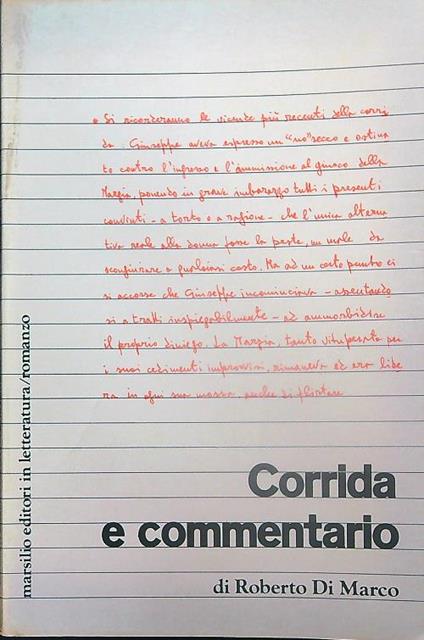 • Si ricorderanno le vicende più recenti della corri
da. Giuseppe aveva espresso un "no" secco e ostina
to contro l'ingresso e l'ammissione al giuoco della
Marzia, ponendo in grave imbarazzo tutti i presenti
convinti - a torto o a ragione - che l'unica alterna
tiva reale alla donna fosse la peste, un male da
scongiurare a qualsiasi costo. Ma ad un certo punto ci
si accorse che Giuseppe incominciava - assentando
si a tratti inspiegabilmente - ad ammorbidire
il proprio diniego. La Marzia, tanto vituperata per
i suoi cedimenti improvvisi, rimaneva ed era libe
ra in ogni sua mossa, anche di flirtare
Corrida
e commentario
di Roberto Di Marco
marsilio editori in letteratura/romanzo